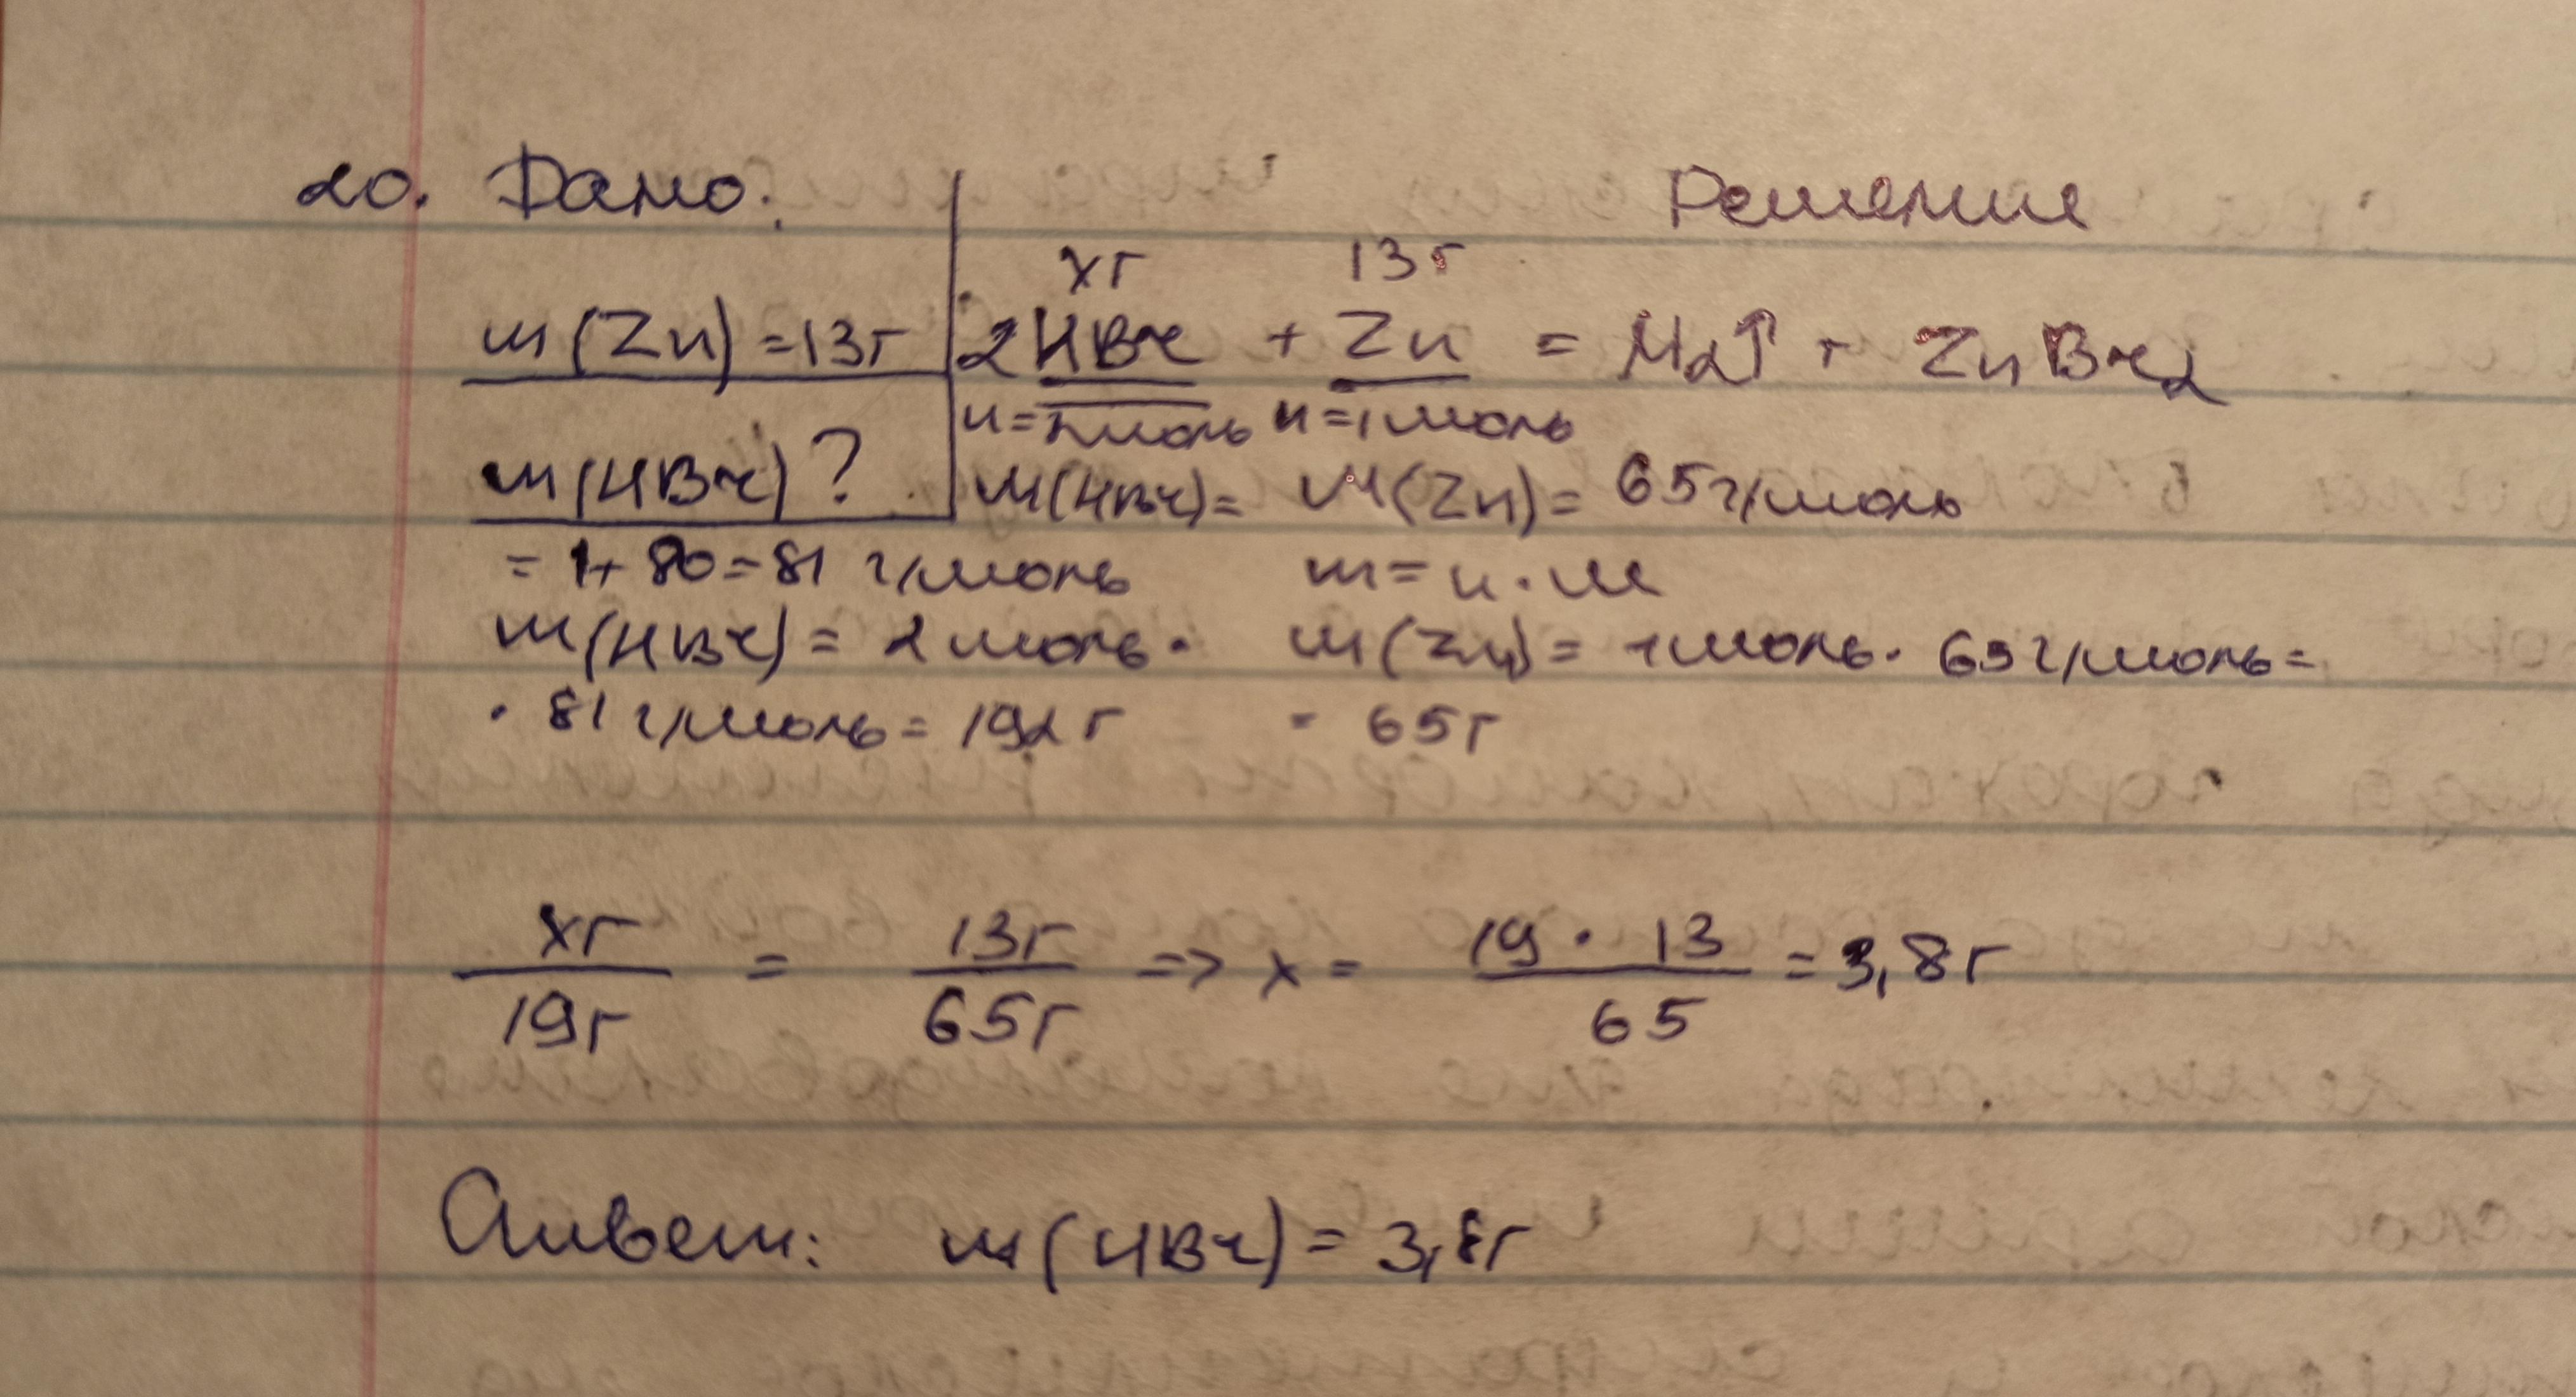 20. Дано: Решение
хг 13г
m(Zn)=13г 2HBr + Zn = H2↑ + ZnBr2
n=2моль n=1моль
m(HBr)? M(HBr)= M(Zn)= 65г/моль
=1+80=81 г/моль m=n·M
m(HBr)= 2моль· m(Zn)= 1моль· 65г/моль=
·81г/моль=192г = 65г
хг/19г = 13г/65г => х= 19·13/65 =3,8г
Ответ: m(HBr)=3,8г